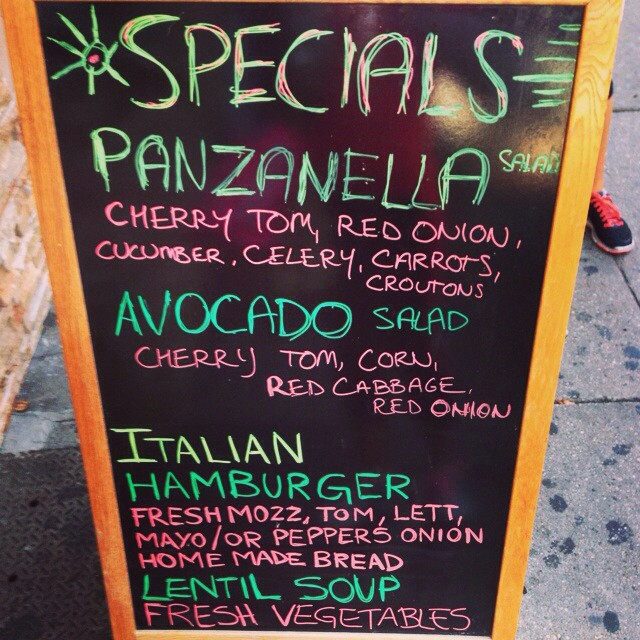 SPECIALS
PANZANELLA SALAD
CHERRY TOM, RED ONION,
CUCUMBER, CELERY, CARROTS,
CROUTONS
AVOCADO SALAD
CHERRY TOM, CORN,
RED CABBAGE,
RED ONION
ITALIAN
HAMBURGER
FRESH MOZZ, TOM, LETT,
MAYO/OR PEPPERS ONION
HOME MADE BREAD
LENTIL SOUP
FRESH VEGETABLES